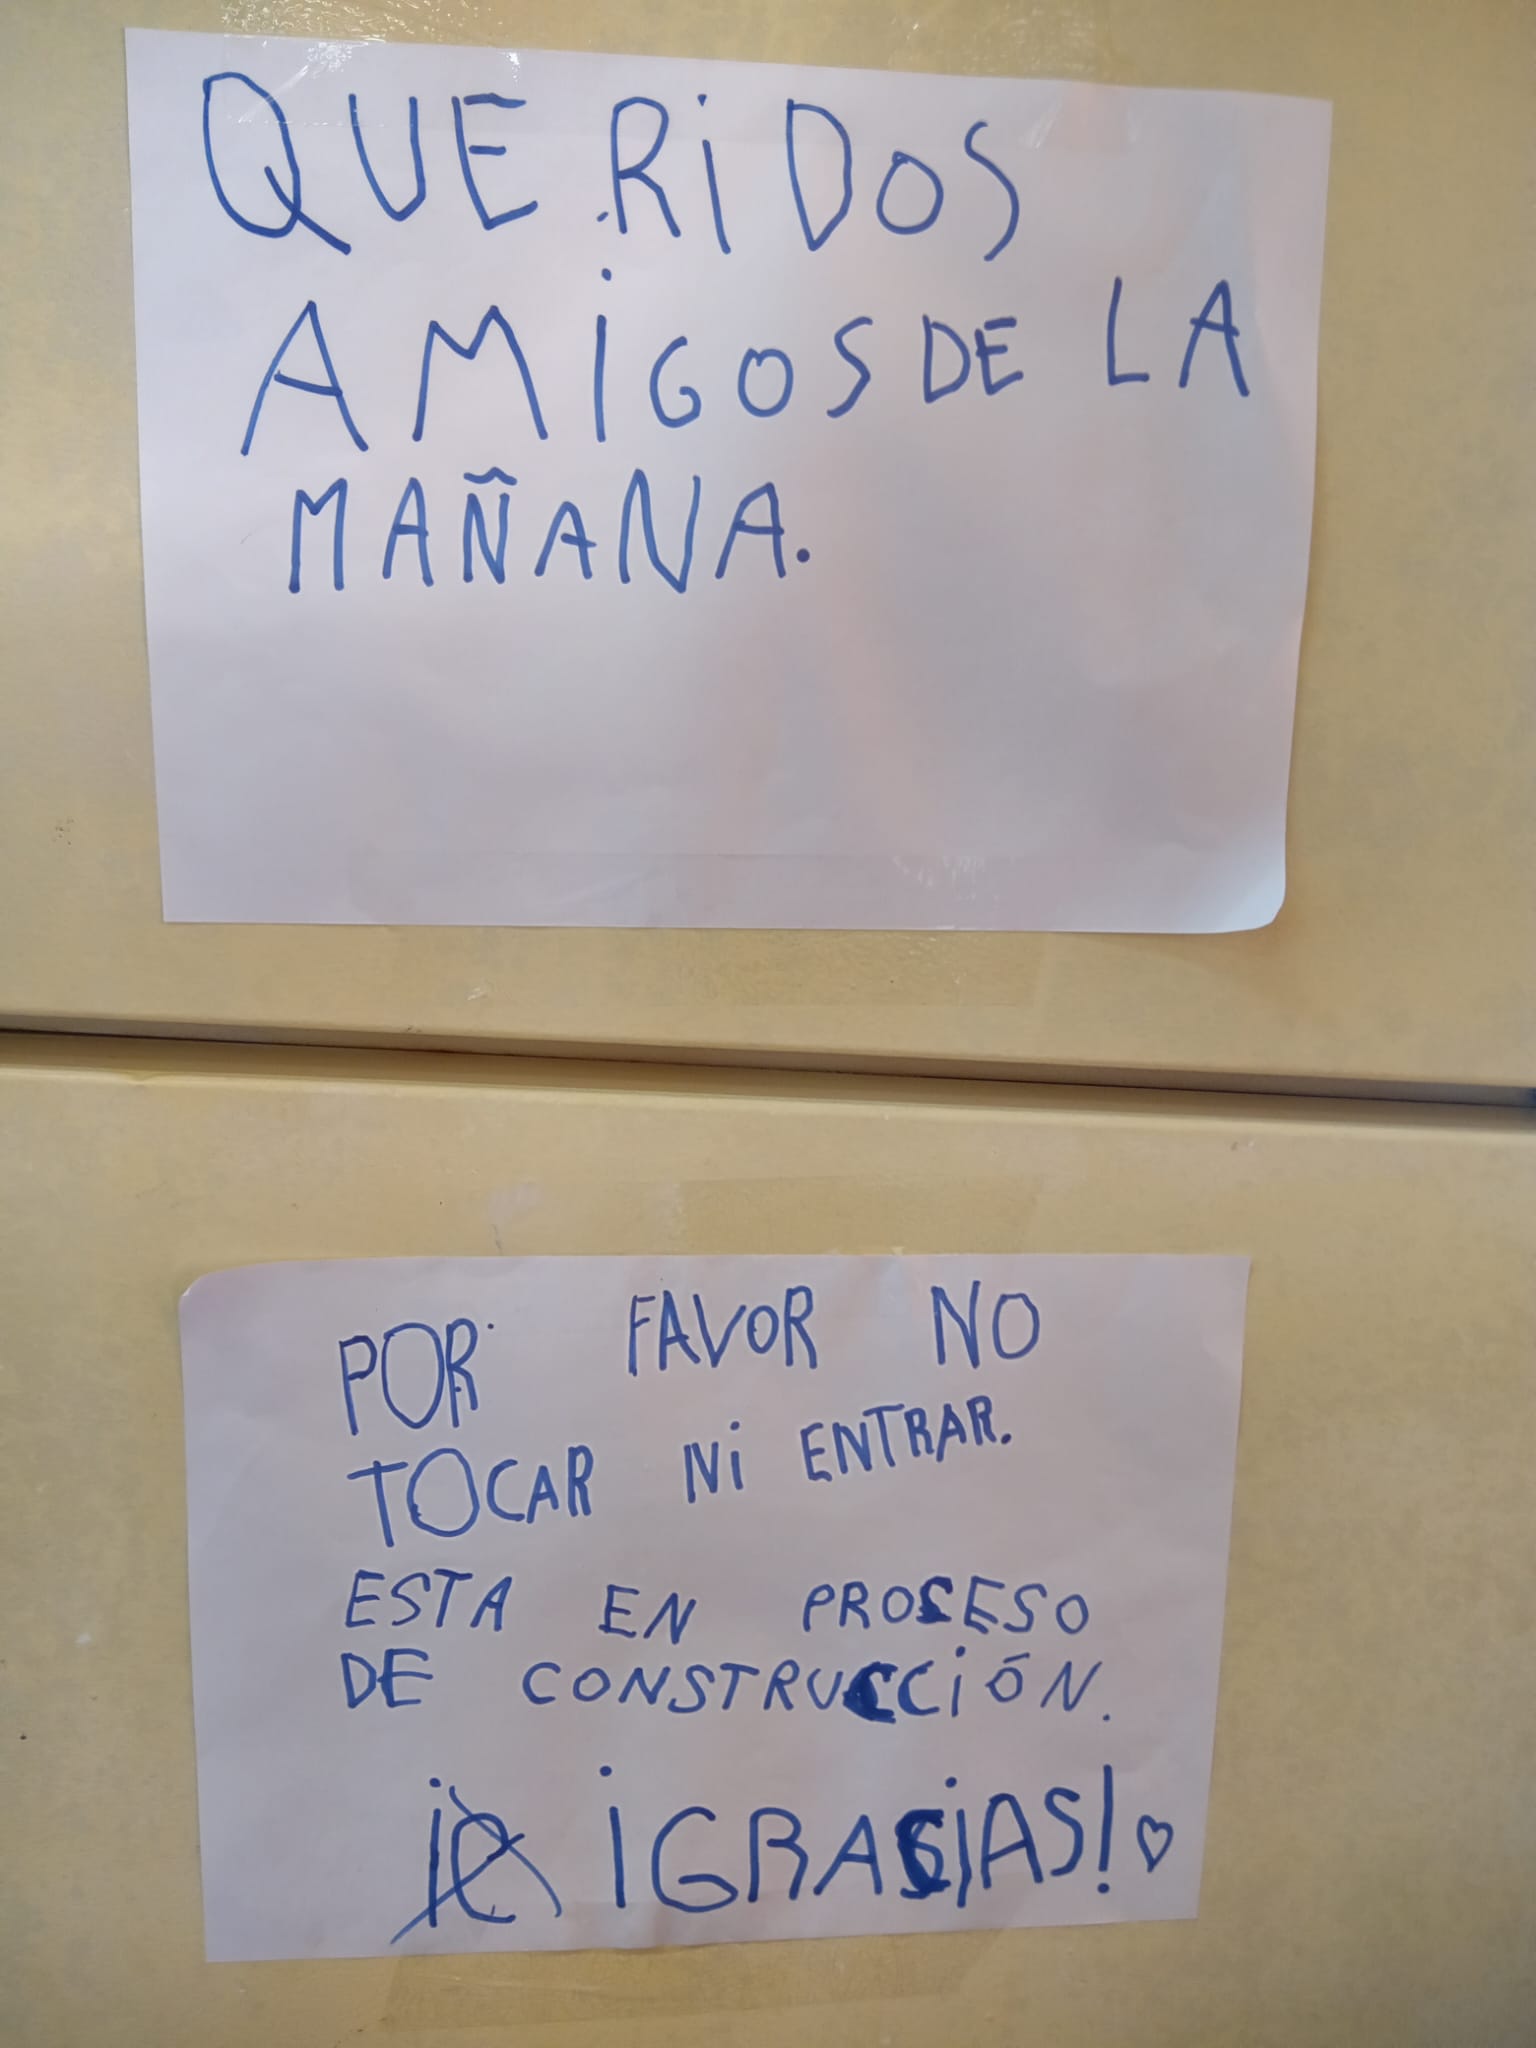 QUERIDOS
AMiGOS DE LA
MAÑANA.
POR FAVOR NO
TOCAR Ni ENTRAR.
ESTA EN PROCESO
DE CONSTRUCCiÓN.
¡GRACiAS!